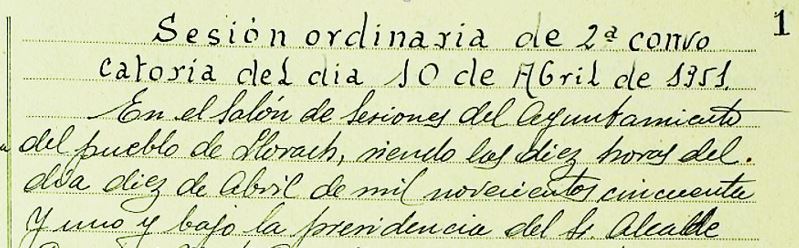 1
Sesión ordinaria de 2ª convo
catoria del dia 10 de Abril de 1951.
En el Salón de Sesiones del Ayuntamiento
del pueblo de Llorach, siendo las diez horas del
dia diez de Abril de mil novecientos cincuenta
y uno y bajo la presidencia del Sr. Alcalde